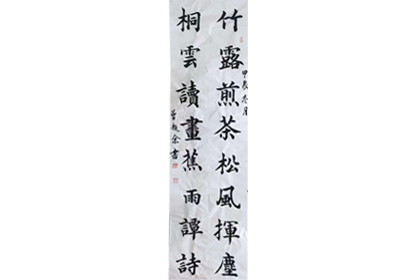 竹露煎茶松風揮塵
甲辰冬月
桐雲讀畫蕉雨譚詩
書